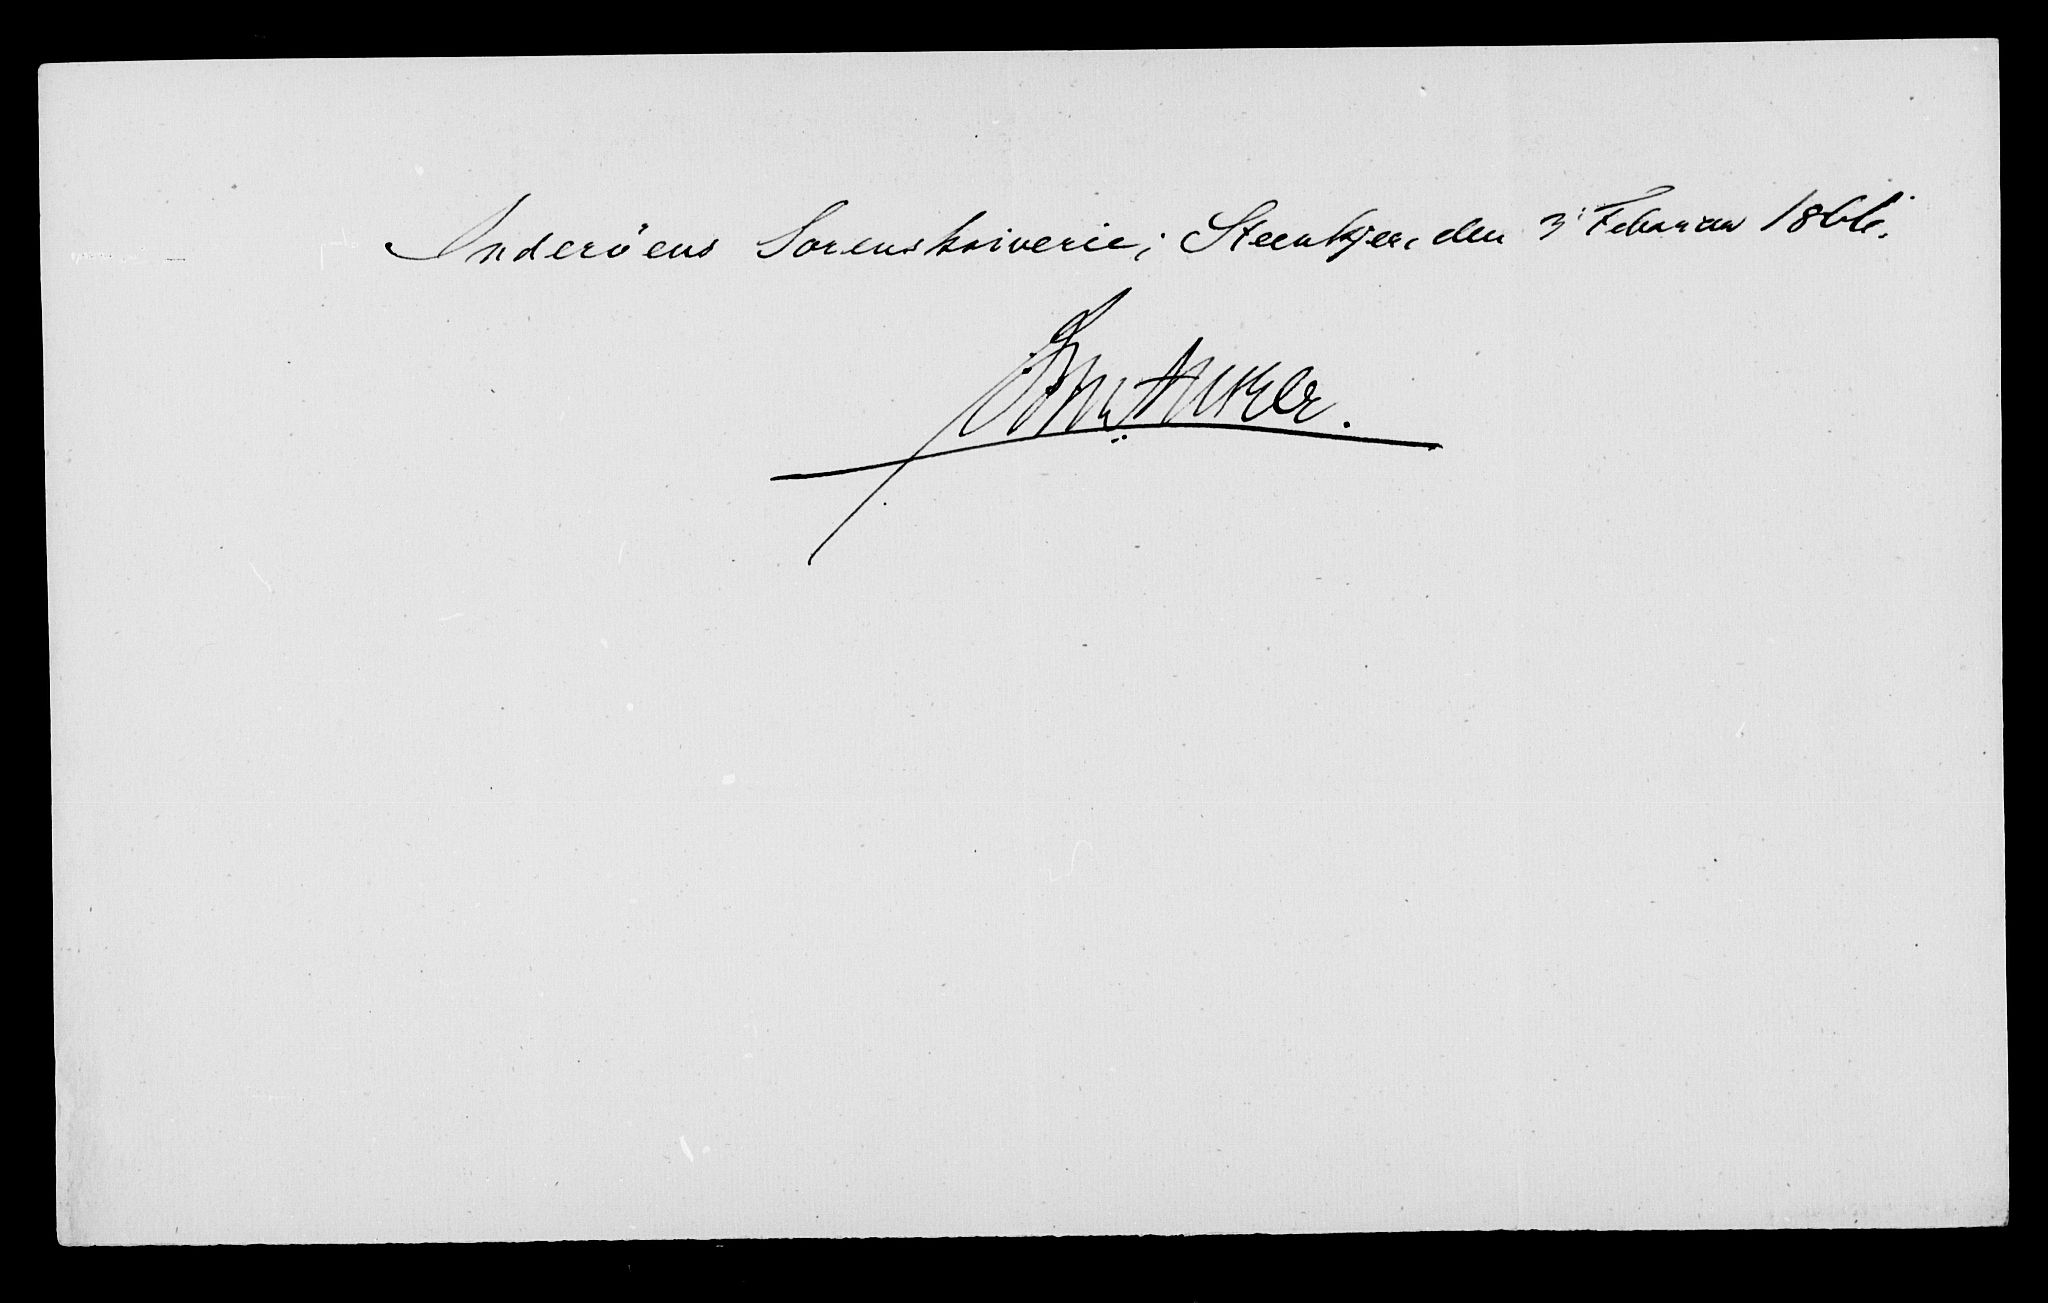 Inderöens Sorenskriverie; Steenkjer, den 3' Februar 1866.
Anker.